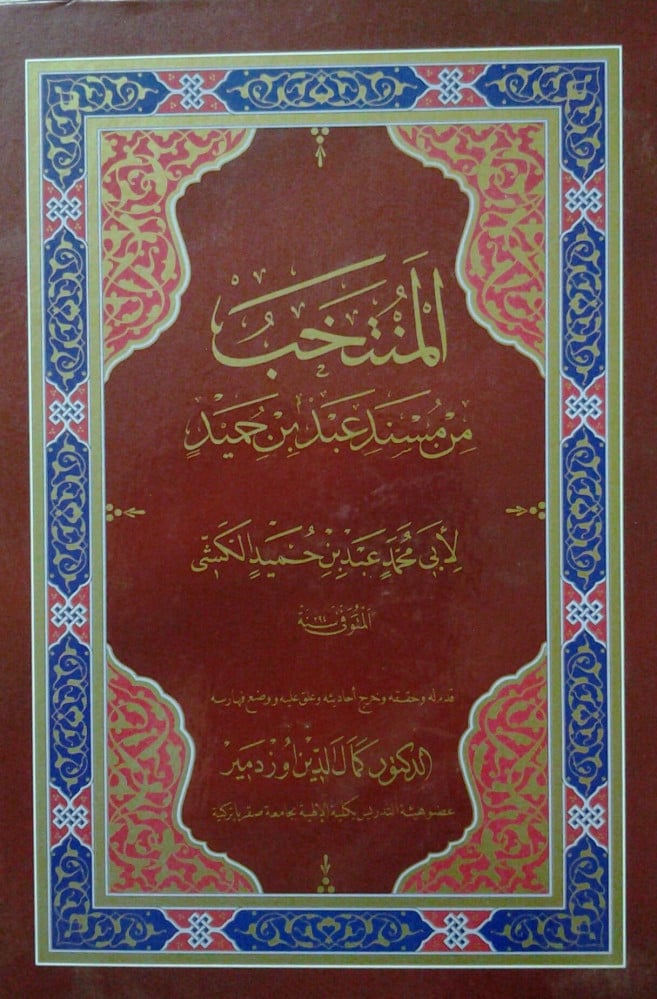 المُنْتَخَبُ
مِنْ مُسْنَدِ عَبْدِ بْنِ حُمَيْدٍ
لِأَبِي مُحَمَّدٍ عَبْدِ بْنِ حُمَيْدٍ الْكَشِّي
المُتَوَفَّى سَنَة ٢٩٤
قدم له وحققه وخرج أحاديثه وعلق عليه ووضع فهارسه
الدكتور كمال الدين اوزدمير
عضو هيئة التدريس بكلية الإلهية بجامعة صقريا بتركية